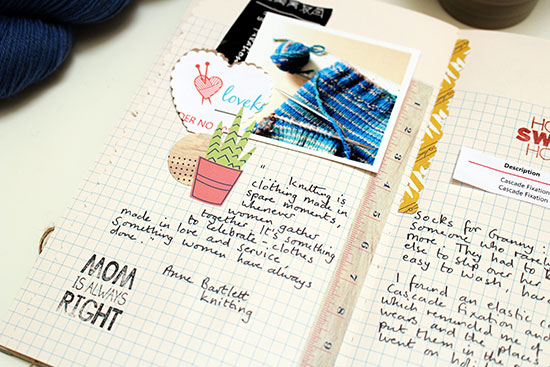 lovekn
DER NO
" Knitting is
clothing made in
spare moments,
whenever
women gather
together. It's something
to celebrate - clothes
made in love and service
something women have always
done. "
Anne Bartlett
knitting
MOM
IS ALWAYS
RIGHT
1
2
3
4
5
6
7
8
9
HO
SW
HO
Description
Cascade Fixation
Cascade Fixation
Socks for Granny :
someone who rarely
more. They had to
else to slip over her
easy to wash,
I found an elastic
Cascade Fixation and
which reminded me of
wears and the places
put them in the
went on